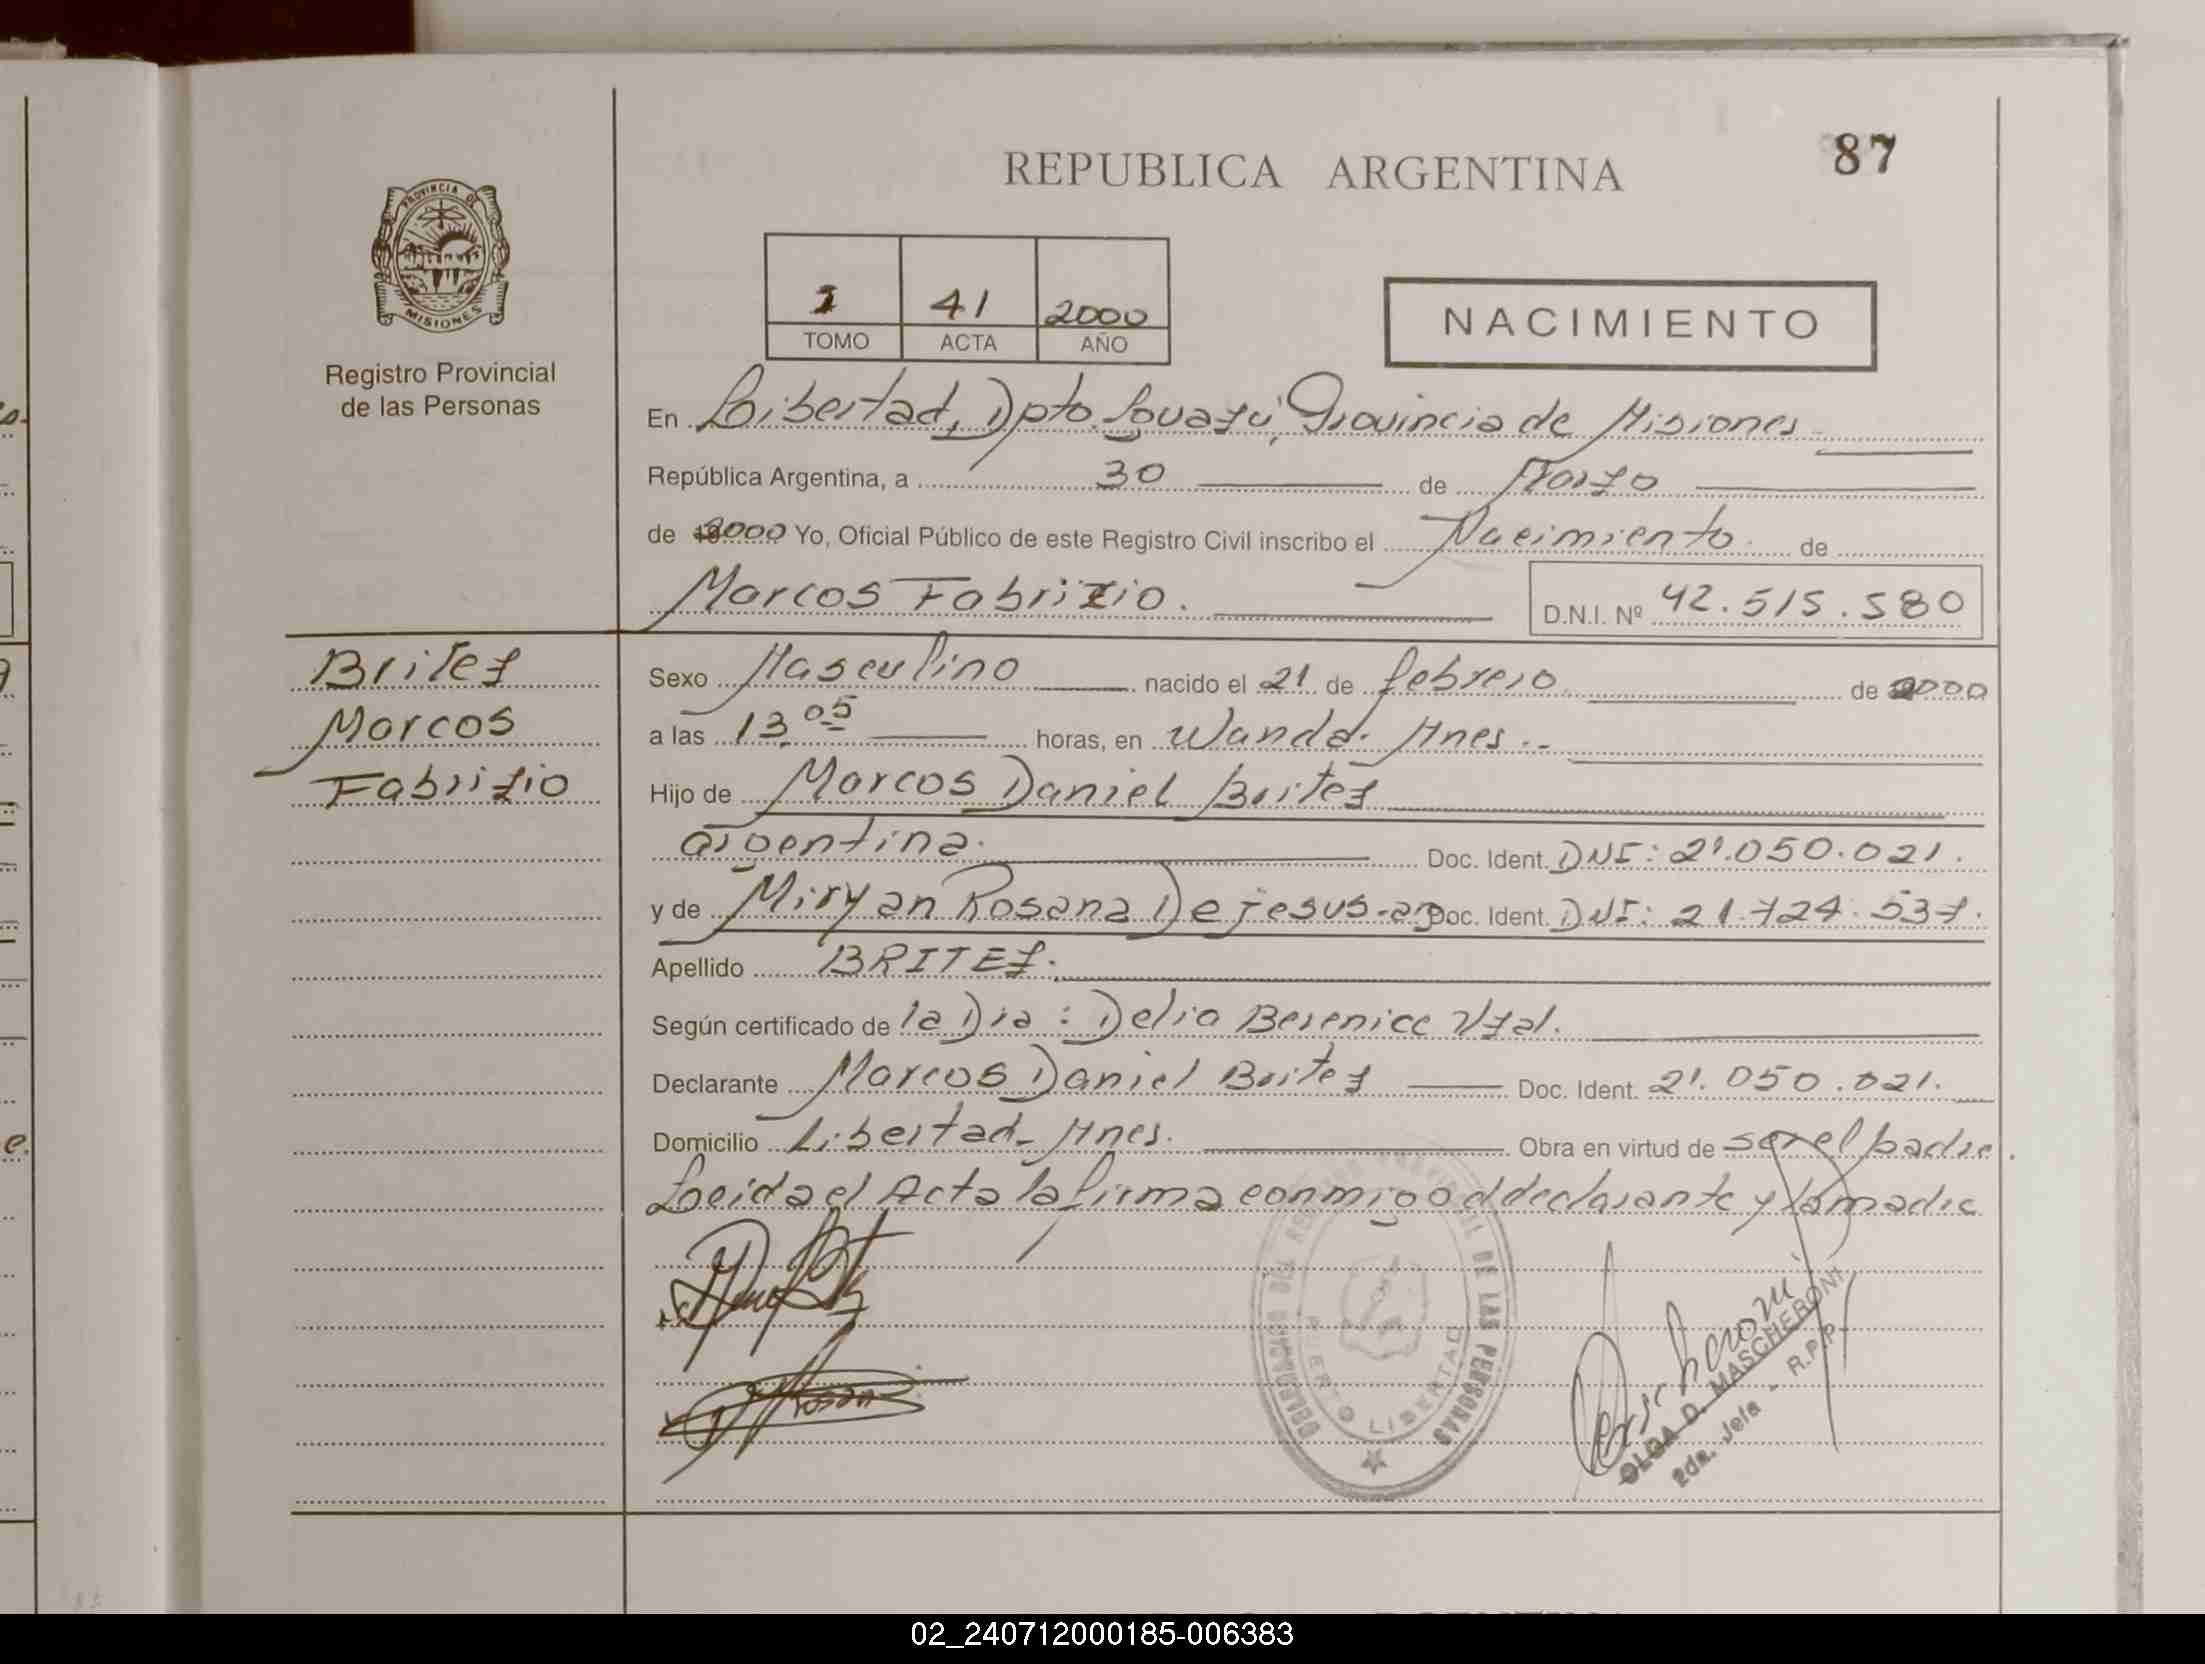 87
REPUBLICA ARGENTINA
PROVINCIA DE
MISIONES
Registro Provincial
de las Personas
1 41 2000
TOMO ACTA AÑO
NACIMIENTO
En Libertad, Dpto. Iguazú, Provincia de Misiones
República Argentina, a 30 de Marzo
de 2000 Yo, Oficial Público de este Registro Civil inscribo el Nacimiento de
Marcos Fabrizio. D.N.I. Nº 42.515.580
Britez
Marcos
Fabrizio
Sexo Masculino nacido el 21 de febrero de 2000
a las 13.05 horas, en Wanda. Mnes.
Hijo de Marcos Daniel Britez
argentina. Doc. Ident. DNI: 21.050.021.
y de Miryan Rosana De jesus-arg Doc. Ident. DNI: 21.724.537.
Apellido BRITEZ.
Según certificado de la Dra: Delia Berenice Uzal.
Declarante Marcos Daniel Britez Doc. Ident. 21.050.021.
Domicilio Libertad-Mnes. Obra en virtud de ser el padre.
Leida el Acta la firma conmigo el declarante y la madre
DELEGACION DEL REGISTRO PROVINCIAL DE LAS PERSONAS
PUERTO LIBERTAD
OLGA D. MASCHERONI
2da. Jefa - R.P.P.
02_240712000185-006383